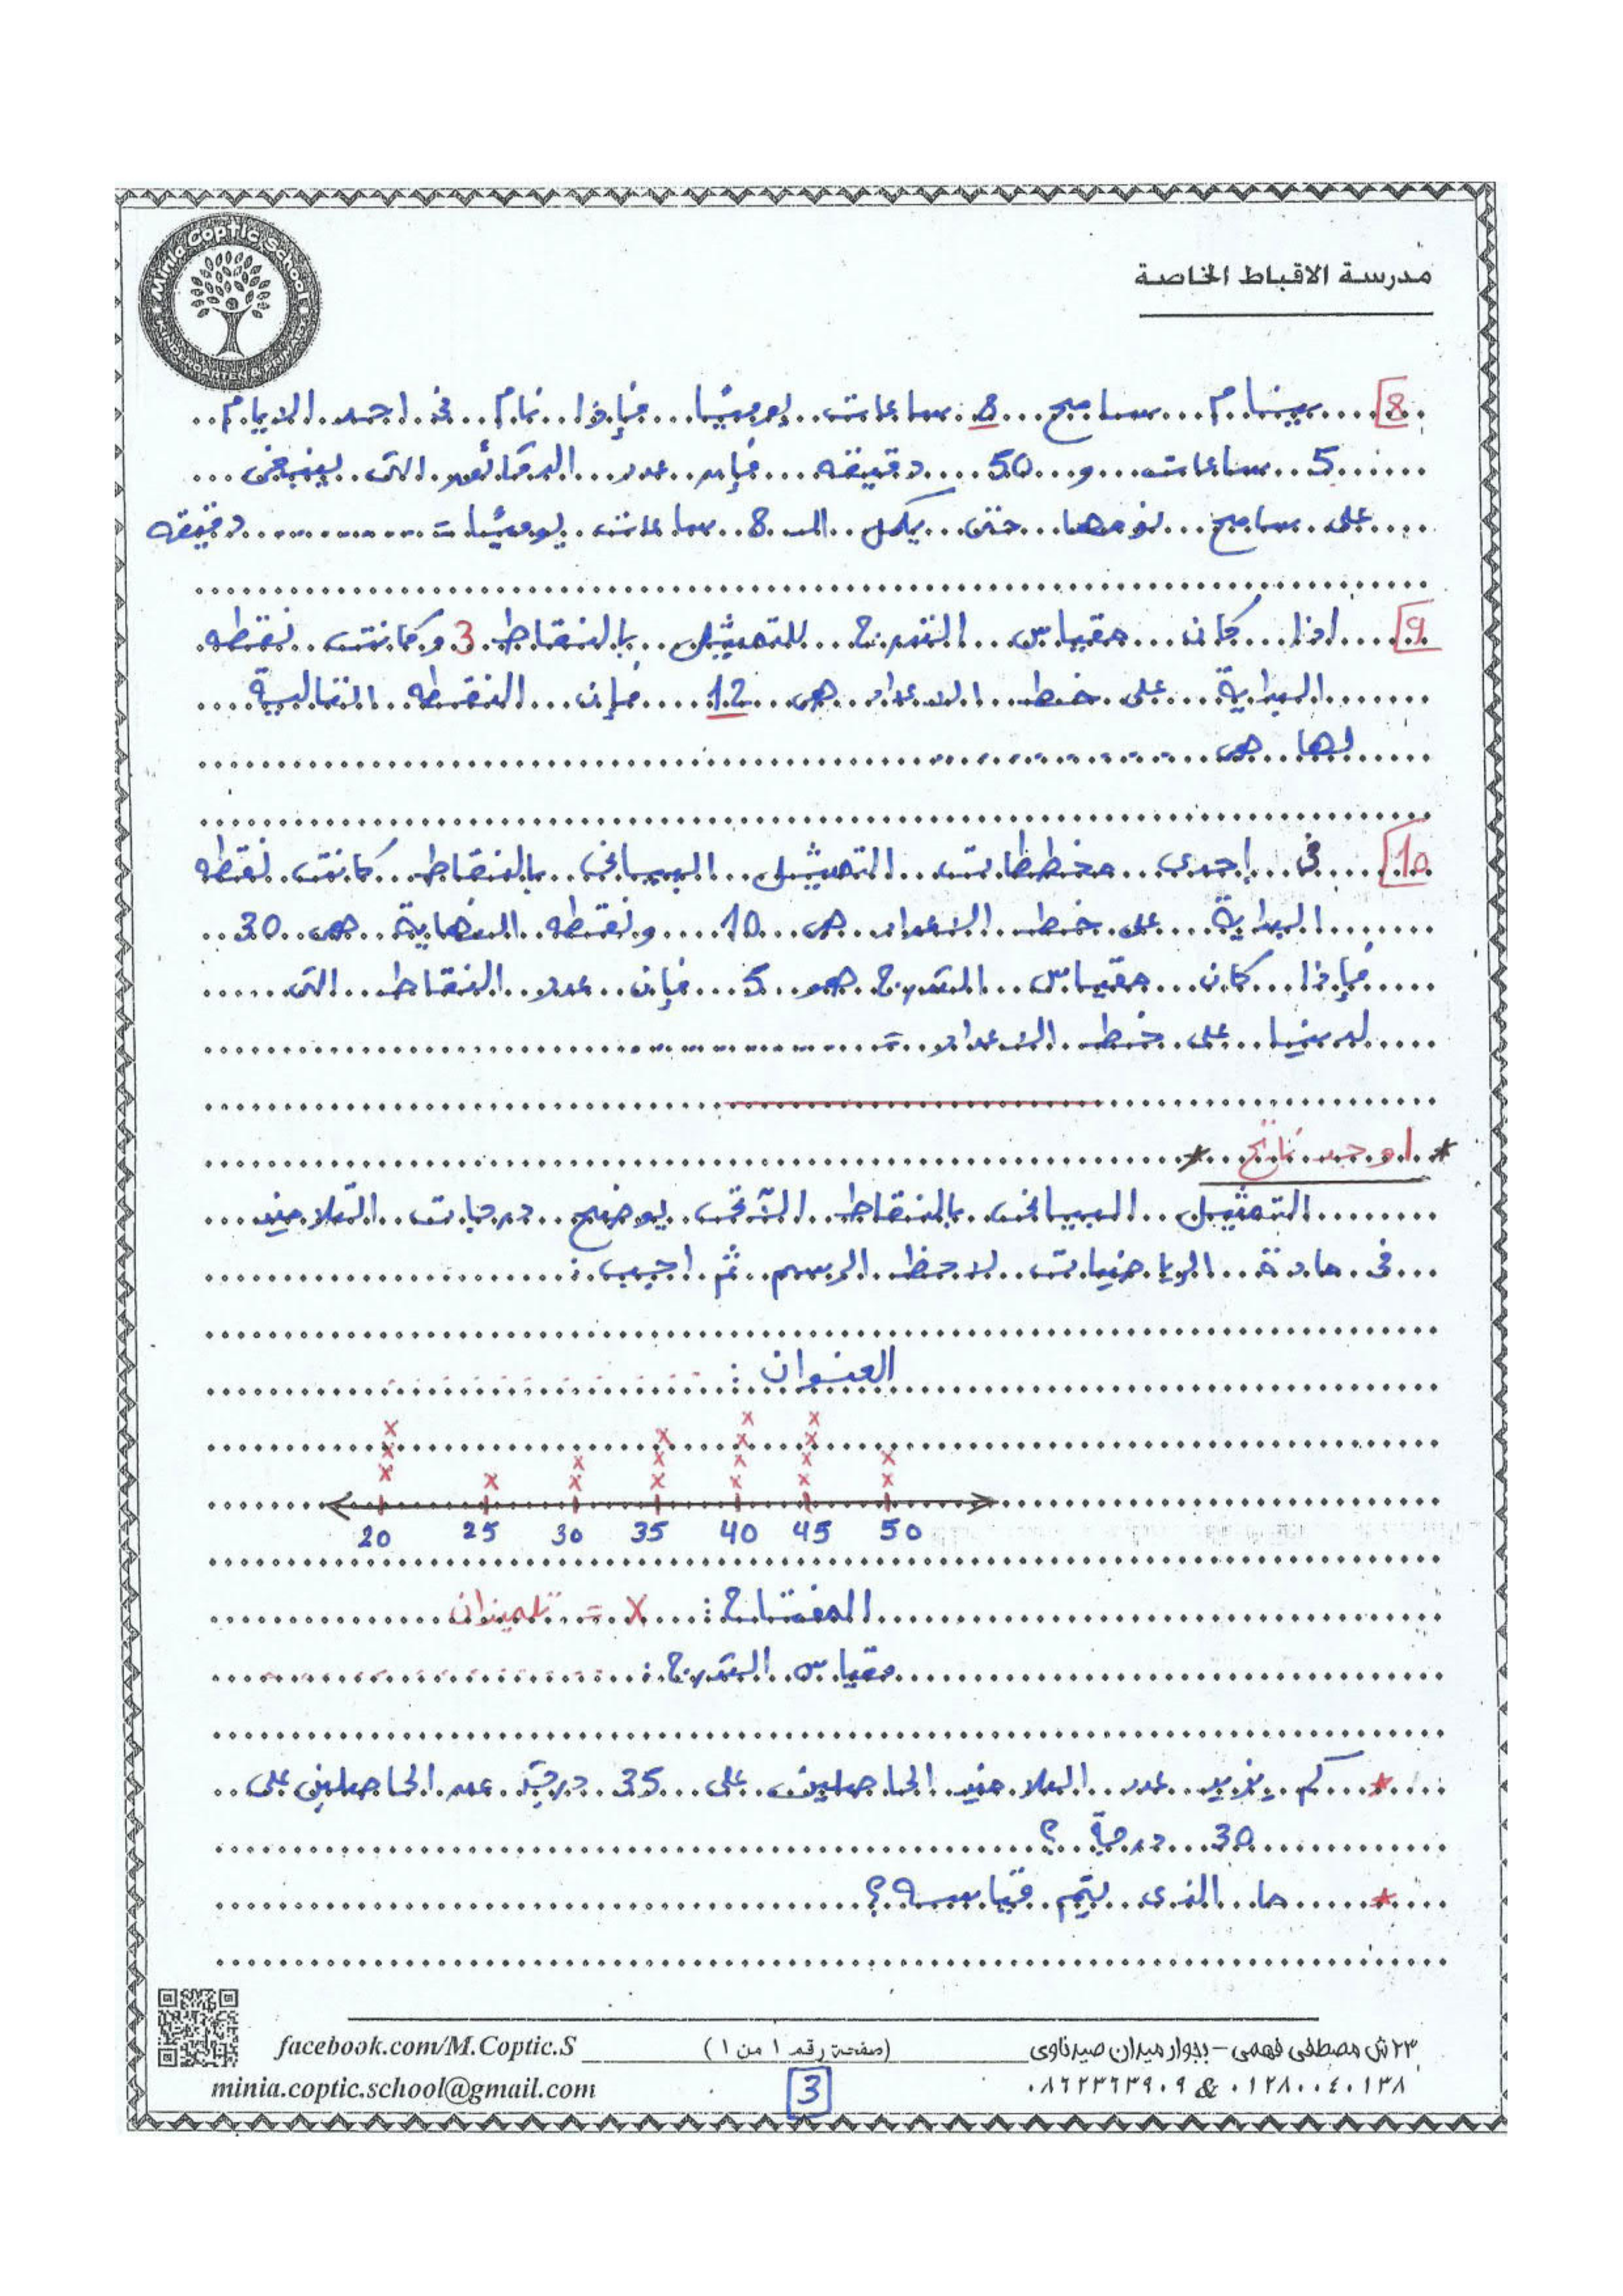 Minia Coptic School
KINDERGARTEN & PRIMARY
مدرسة الاقباط الخاصة
8 ينام سامح 8 ساعات يوميًا فإذا نام فى احد الايام
5 ساعات و 50 دقيقه فإن عدد الدقائق التى ينبغى
على سامح نومها حتى يكمل الـ 8 ساعات يوميًا = دقيقه
9 اذا كان مقياس التدرج للتمثيل بالنقاط 3 وكانت نقطه
البداية على خط الاعداد هى 12 فإن النقطه التالية
لها هى
10 فى إحدى مخططات التمثيل البيانى بالنقاط كانت نقطه
البداية على خط الاعداد هى 10 ونقطه النهاية هى 30
فإذا كان مقياس التدرج هو 5 فإن عدد النقاط التى
لدينا على خط الاعداد =
* اوجد ناتج *
التمثيل البيانى بالنقاط الآتى يوضح درجات التلاميذ
فى مادة الرياضيات لاحظ الرسم ثم اجب :
العنوان :
x x x x x x x x x x x x x x x x x x x
20 25 30 35 40 45 50
المفتاح : X = تلميذان
مقياس التدرج :
* كم يزيد عدد التلاميذ الحاصلين على 35 درجة عن الحاصلين على
30 درجة ؟
* ما الذى يتم قياسه ؟
facebook.com/M.Coptic.S (صفحة رقم ١ من ١) ٢٣ ش مصطفى فهمى - بجوار ميدان صيدناوى
minia.coptic.school@gmail.com 3 ٠٨٦٢٣٦٣٩٠٩ & ٠١٢٨٠٠٤٠١٣٨